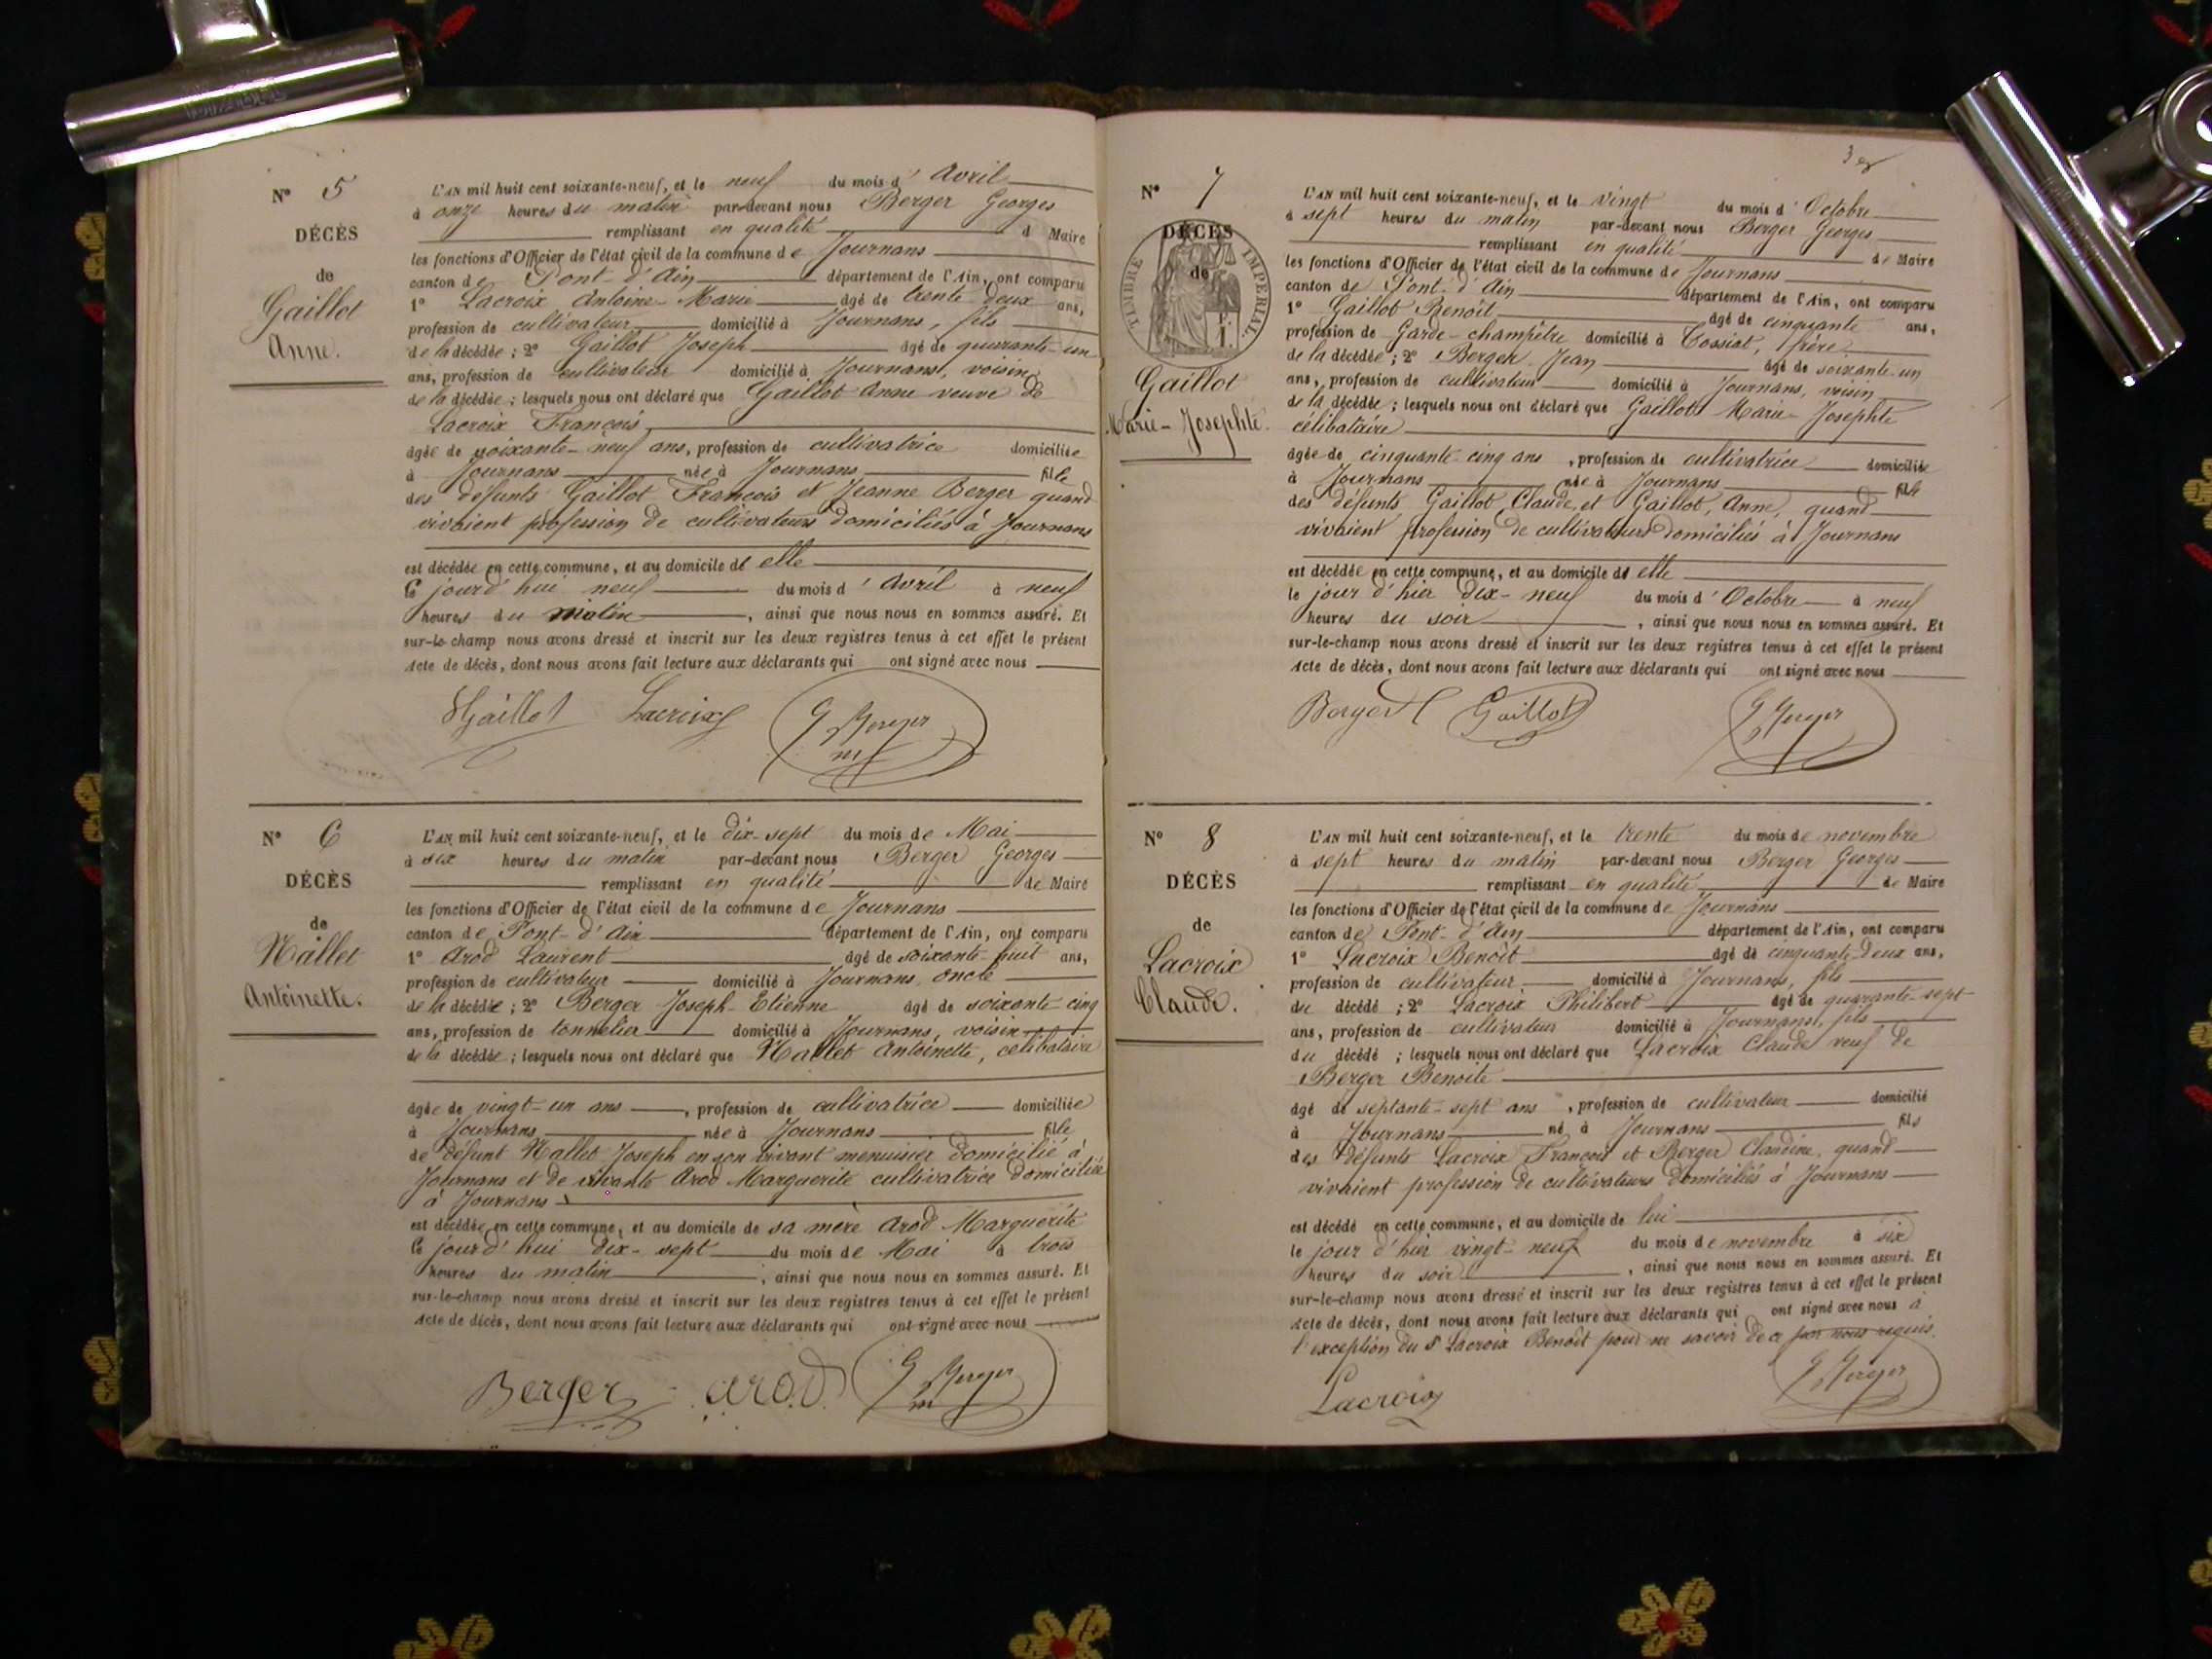 N° 5
DÉCÈS
de
Gaillot
Anne.
L'AN mil huit cent soixante-neuf, et le neuf du mois d' Avril
à onze heures du matin par-devant nous Berger Georges
remplissant en qualité d Maire
les fonctions d'Officier de l'état civil de la commune de Journans
canton de Pont-d'Ain département de l'Ain, ont comparu
1° Lacroix Antoine-Marie âgé de trente-deux ans,
profession de cultivateur domicilié à Journans, fils
de la décédée ; 2° Gaillot Joseph âgé de quarante-un
ans, profession de cultivateur domicilié à Journans, voisin
de la décédée ; lesquels nous ont déclaré que Gaillot Anne veuve de
Lacroix François,
âgée de soixante-neuf ans, profession de cultivatrice domiciliée
à Journans née à Journans fille
des défunts Gaillot François et Jeanne Berger quand
vivaient profession de cultivateurs domiciliés à Journans
est décédée en cette commune, et au domicile de elle
le jourd'hui neuf du mois d' Avril à neuf
heures du matin, ainsi que nous nous en sommes assuré. Et
sur-le-champ nous avons dressé et inscrit sur les deux registres tenus à cet effet le présent
Acte de décès, dont nous avons fait lecture aux déclarants qui ont signé avec nous
Gaillot Lacroix G Berger
m
N° 6
DÉCÈS
de
Nallet
Antoinette.
L'AN mil huit cent soixante-neuf, et le dix-sept du mois de Mai
à six heures du matin par-devant nous Berger Georges
remplissant en qualité de Maire
les fonctions d'Officier de l'état civil de la commune de Journans
canton de Pont-d'Ain département de l'Ain, ont comparu
1° Arod Laurent âgé de soixante-huit ans,
profession de cultivateur domicilié à Journans, oncle
de la décédée ; 2° Berger Joseph-Etienne âgé de soixante-cinq
ans, profession de tonnelier domicilié à Journans, voisin
de la décédée ; lesquels nous ont déclaré que Nallet Antoinette, célibataire
âgée de vingt-un ans, profession de cultivatrice domiciliée
à Journans née à Journans fille
de défunt Nallet Joseph en son vivant menuisier domicilié à
Journans et de vivante Arod Marguerite cultivatrice domiciliée
à Journans
est décédée en cette commune, et au domicile de sa mère Arod Marguerite
le jourd'hui dix-sept du mois de Mai à trois
heures du matin, ainsi que nous nous en sommes assuré. Et
sur-le-champ nous avons dressé et inscrit sur les deux registres tenus à cet effet le présent
Acte de décès, dont nous avons fait lecture aux déclarants qui ont signé avec nous
Berger Arod G Berger
m
3
N° 7
DÉCÈS
de
TIMBRE IMPERIAL
Gaillot
Marie-Josephte.
L'AN mil huit cent soixante-neuf, et le vingt du mois d' Octobre
à sept heures du matin par-devant nous Berger Georges
remplissant en qualité de Maire
les fonctions d'Officier de l'état civil de la commune de Journans
canton de Pont-d'Ain département de l'Ain, ont comparu
1° Gaillot Benoît âgé de cinquante ans,
profession de Garde-champêtre domicilié à Tossiat, frère
de la décédée ; 2° Berger Jean âgé de soixante-un
ans, profession de cultivateur domicilié à Journans, voisin
de la décédée ; lesquels nous ont déclaré que Gaillot Marie-Josephte
célibataire
âgée de cinquante-cinq ans, profession de cultivatrice domiciliée
à Journans née à Journans fille
des défunts Gaillot, Claude, et Gaillot, Anne, quand
vivaient profession de cultivateurs domiciliés à Journans
est décédée en cette commune, et au domicile de elle
le jour d'hier dix-neuf du mois d' Octobre à neuf
heures du soir, ainsi que nous nous en sommes assuré. Et
sur-le-champ nous avons dressé et inscrit sur les deux registres tenus à cet effet le présent
Acte de décès, dont nous avons fait lecture aux déclarants qui ont signé avec nous
Berger Gaillot G Berger
N° 8
DÉCÈS
de
Lacroix
Claude.
L'AN mil huit cent soixante-neuf, et le trente du mois de novembre
à sept heures du matin par-devant nous Berger Georges
remplissant en qualité de Maire
les fonctions d'Officier de l'état civil de la commune de Journans
canton de Pont-d'Ain département de l'Ain, ont comparu
1° Lacroix Benoît âgé de cinquante-deux ans,
profession de cultivateur domicilié à Journans, fils
du décédé ; 2° Lacroix Philibert âgé de quarante-sept
ans, profession de cultivateur domicilié à Journans, fils
du décédé ; lesquels nous ont déclaré que Lacroix Claude veuf de
Berger Benoite
âgé de septante-sept ans, profession de cultivateur domicilié
à Journans né à Journans fils
des défunts Lacroix François et Berger Claudine, quand
vivaient profession de cultivateurs domiciliés à Journans
est décédé en cette commune, et au domicile de lui
le jour d'hier vingt-neuf du mois de novembre à six
heures du soir, ainsi que nous nous en sommes assuré. Et
sur-le-champ nous avons dressé et inscrit sur les deux registres tenus à cet effet le présent
Acte de décès, dont nous avons fait lecture aux déclarants qui ont signé avec nous à
l'exception du Sr Lacroix Benoît pour ne savoir de ce par nous requis.
Lacroix G Berger